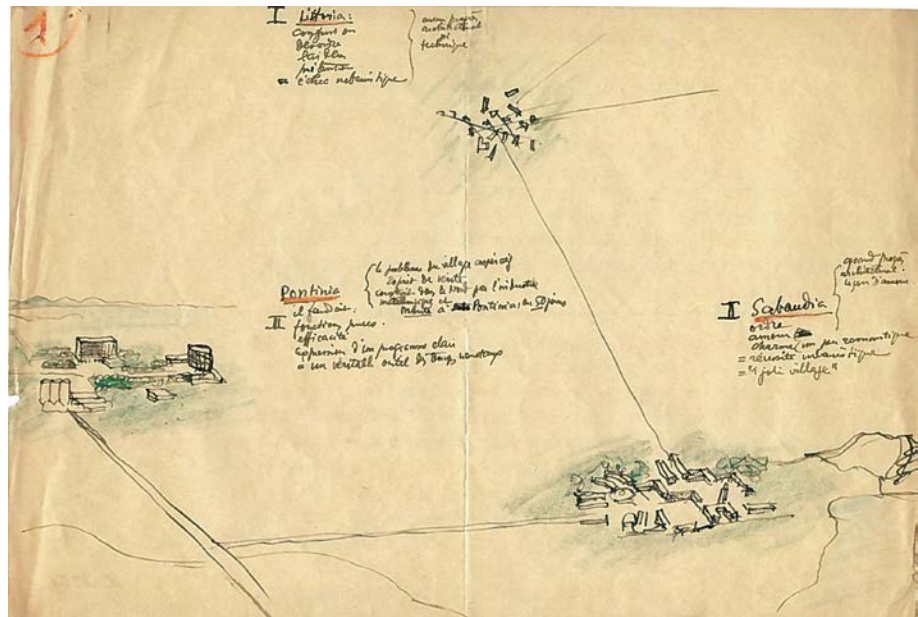 1
I Littoria:
confus ou
désordre
= échec urbanistique
technique
Pontinia
il faudrait:
III fonctions pures.
efficacité
expression d'un programme clair
= un véritable outil des temps nouveaux
le problème du village coopératif
esprit de vérité
construit dans le Nord par l'industrie
métallurgique et
monté à Pontinia en 50 jours
II Sabaudia
ordre
amour
charme, un peu romantique
= réussite urbanistique
= "1 joli village"
grand progrès
architectural.
leçon d'amour.